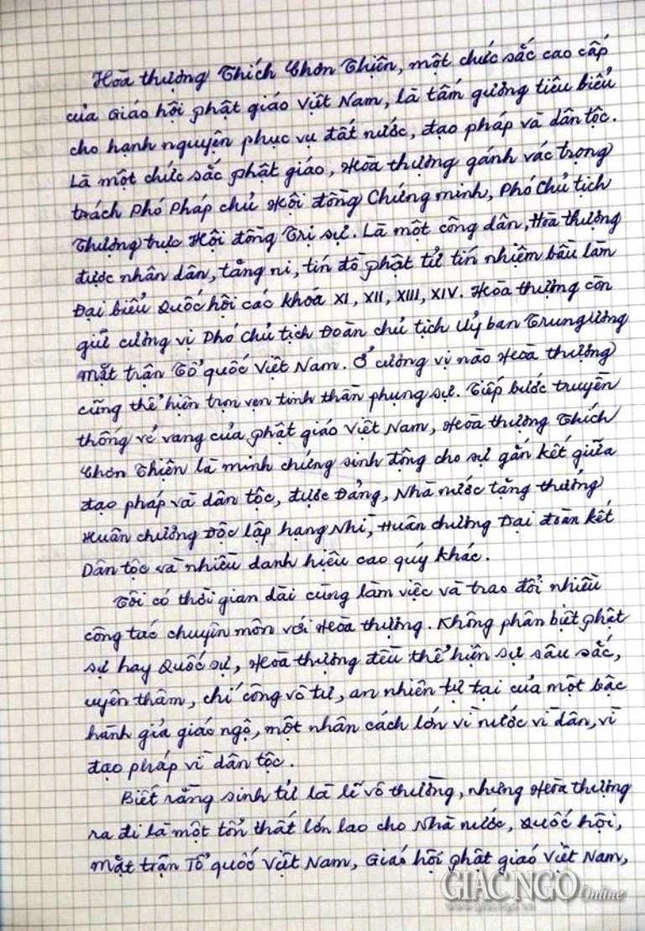 Hòa thượng Thích Chơn Thiện, một chức sắc cao cấp
của Giáo hội Phật giáo Việt Nam, là tấm gương tiêu biểu
cho hạnh nguyện phục vụ đất nước, đạo pháp và dân tộc.
Là một chức sắc Phật giáo, Hòa thượng gánh vác trọng
trách Phó Pháp chủ Hội đồng Chứng minh, Phó Chủ tịch
Thường trực Hội đồng Trị sự. Là một công dân, Hòa thượng
được nhân dân, tăng ni, tín đồ Phật tử tín nhiệm bầu làm
Đại biểu Quốc hội các khóa XI, XII, XIII, XIV. Hòa thượng còn
giữ cương vị Phó Chủ tịch Đoàn chủ tịch Uỷ ban Trung ương
Mặt trận Tổ quốc Việt Nam. Ở cương vị nào Hòa thượng
cũng thể hiện trọn vẹn tinh thần phụng sự. Tiếp bước truyền
thống vẻ vang của Phật giáo Việt Nam, Hòa thượng Thích
Chơn Thiện là minh chứng sinh động cho sự gắn kết giữa
đạo pháp và dân tộc, được Đảng, Nhà nước tặng thưởng
Huân chương Độc lập hạng Nhì, Huân chương Đại đoàn kết
Dân tộc và nhiều danh hiệu cao quý khác.
Tôi có thời gian dài cùng làm việc và trao đổi nhiều
công tác chuyên môn với Hòa thượng. Không phân biệt Phật
sự hay Quốc sự, Hòa thượng đều thể hiện sự sâu sắc,
uyên thâm, chí công vô tư, an nhiên tự tại của một bậc
hành giả giác ngộ, một nhân cách lớn vì nước vì dân, vì
đạo pháp vì dân tộc.
Biết rằng sinh tử là lẽ vô thường, nhưng Hòa thượng
ra đi là một tổn thất lớn lao cho Nhà nước, Quốc hội,
Mặt trận Tổ quốc Việt Nam, Giáo hội Phật giáo Việt Nam,
GIÁC NGỘ Online
www.giacngo.vn